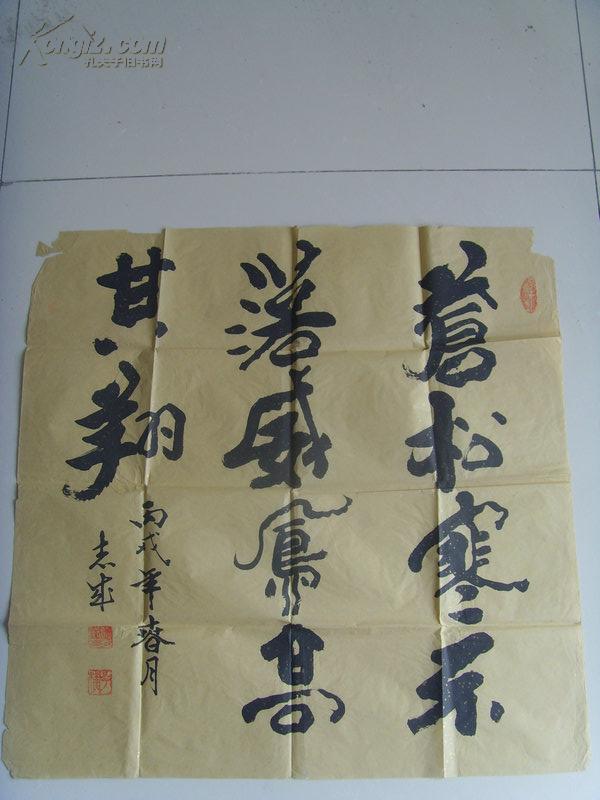 Kongfz.com
孔夫子旧书网
蒼松寒不
落威鳳高
其翔
丙戌年春月
志成